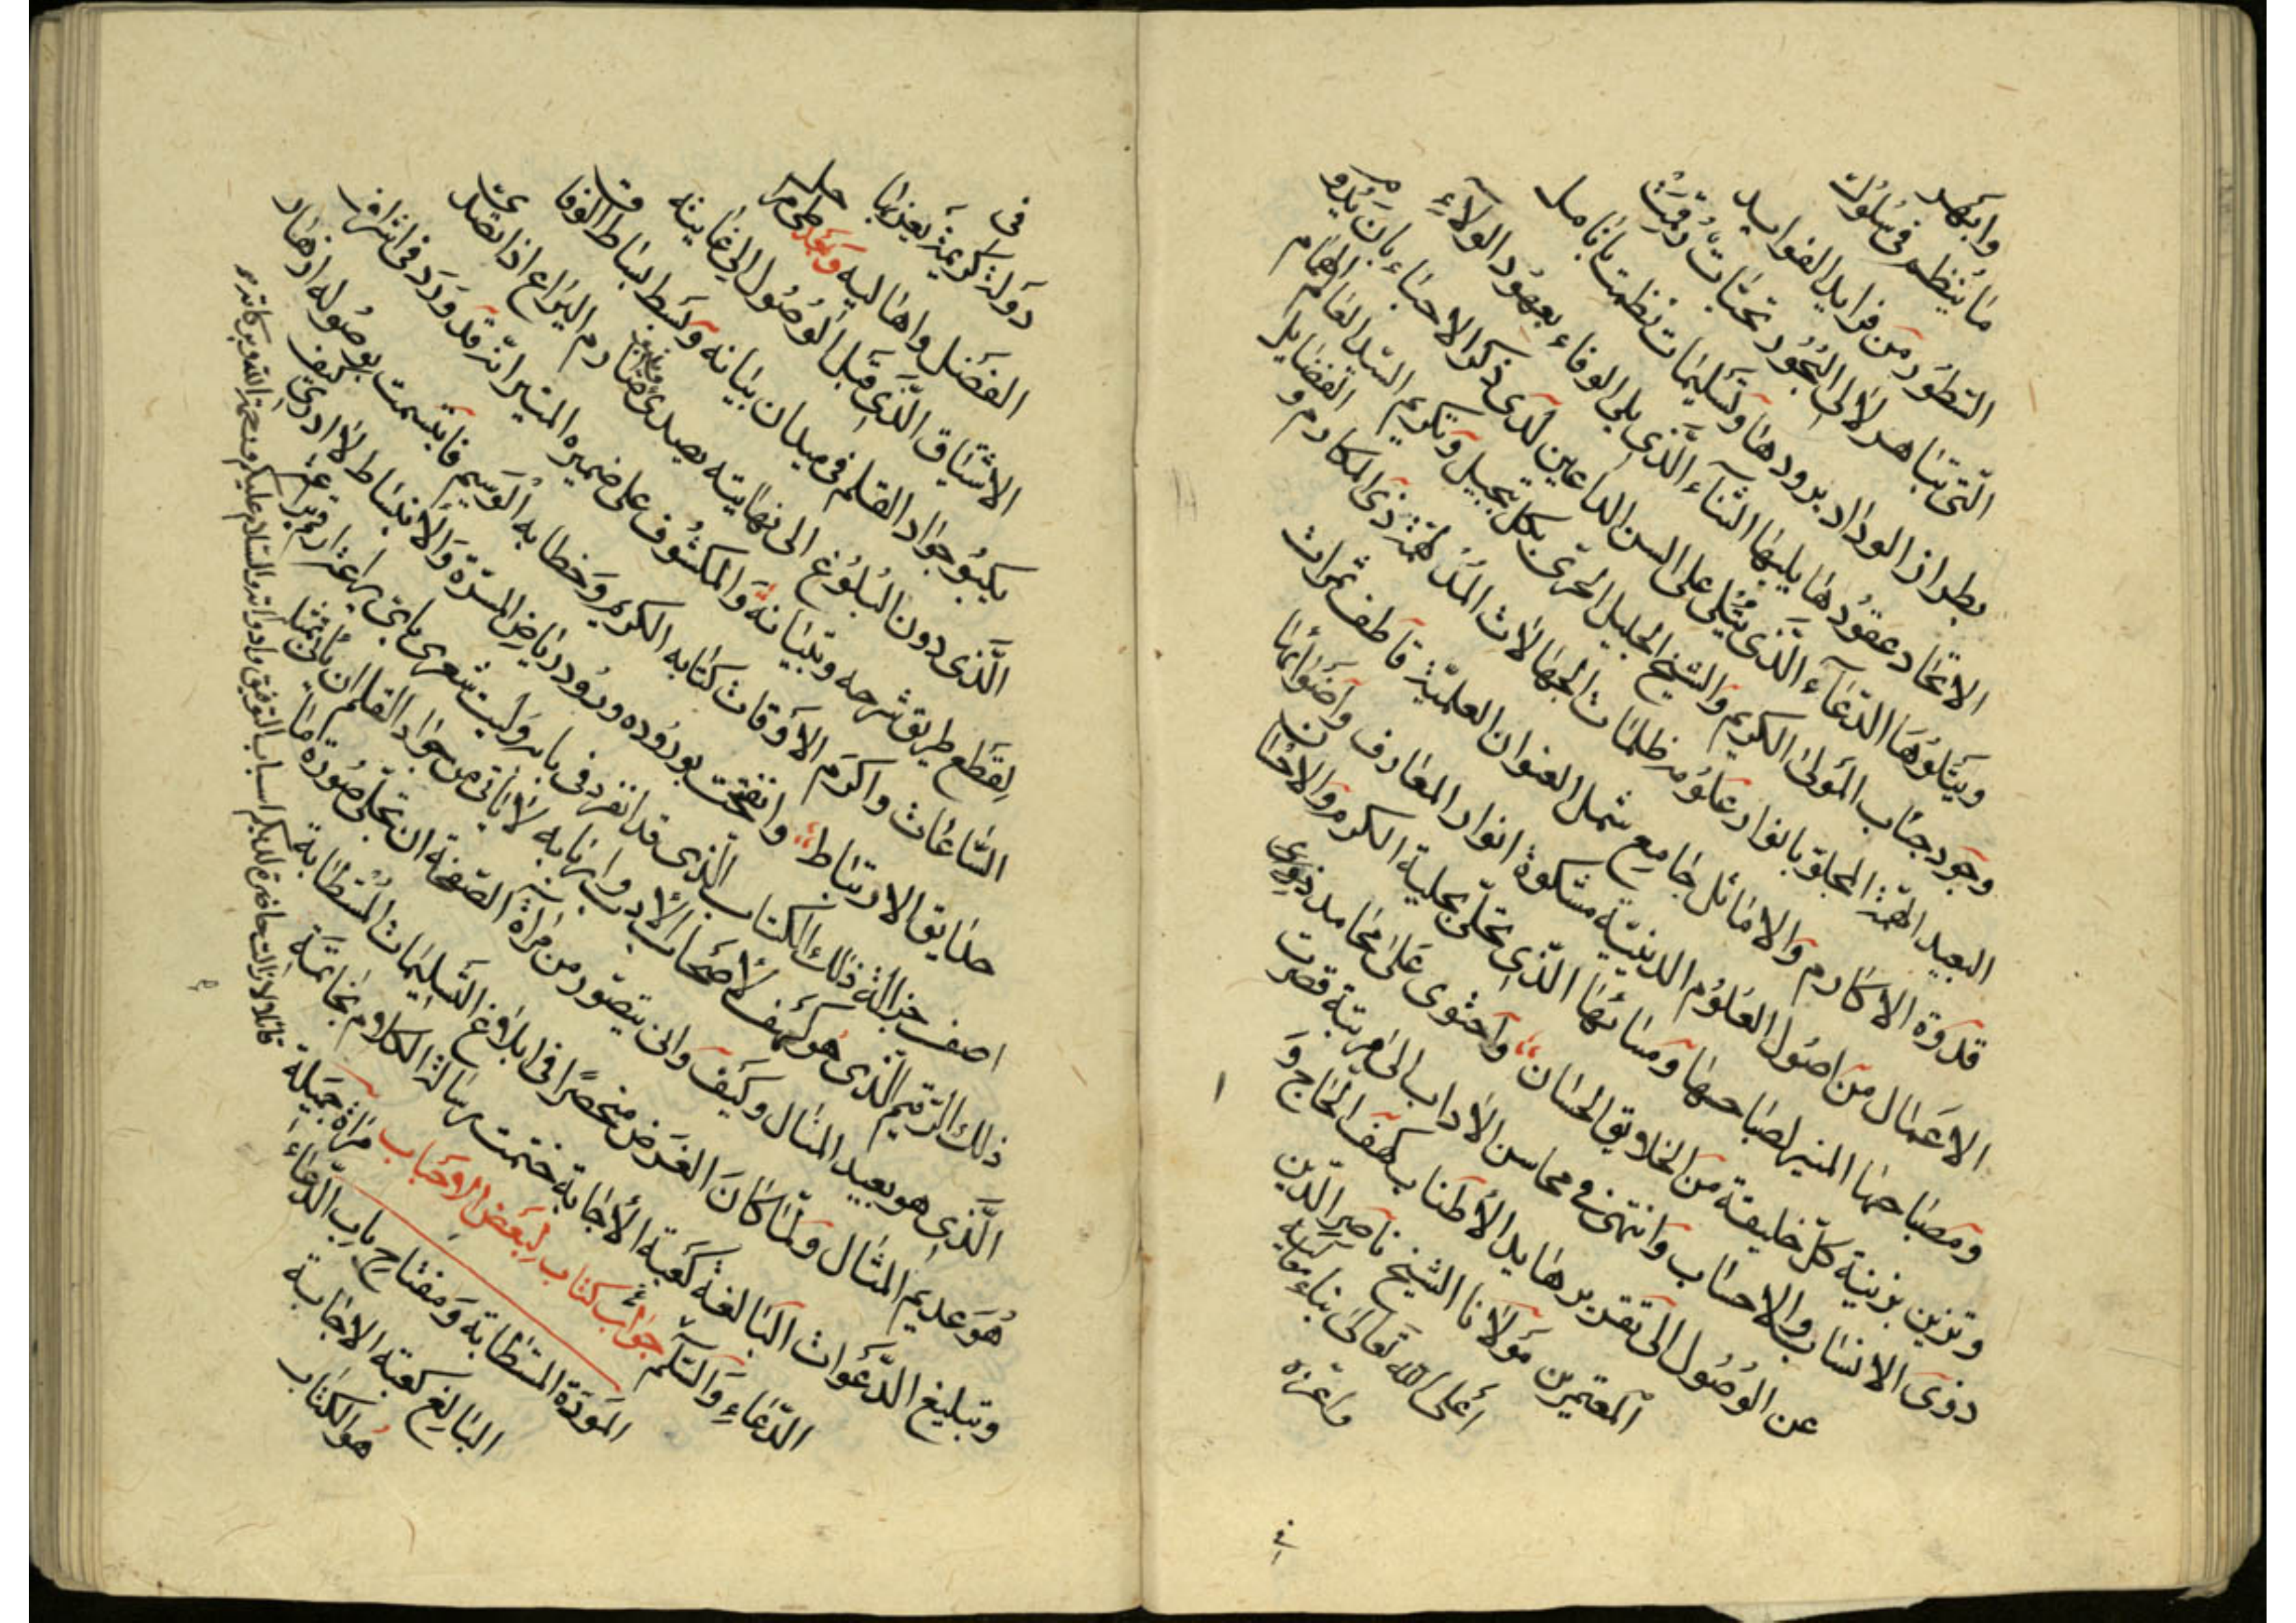 وابهر
ما ينظم فى سلوك
السطور من فرايد الفوايد
التى تباهر لآلى البحور تحيات رقمت
بطراز الوداد برودها وتسليمات نظمت بانامل
الاتحاد عقودها يليها الثناء الذى يلى الوفاء بعهود الولاء
ويتلوها الدعاء الذى يتلى على السن الداعين لدى ذكر الاحباء بان يدوم
وجود جناب المولى الكريم والشيخ الجليل الحرى بكل تبجيل وتكريم السيد العالم الهمام
البعيد الهمة المجلو بانوار علومه ظلمات الجهالات المدلهمة ذى المكارم و الفضايل
قدوة الاكارم والاماثل جامع شمل العنوان العلمية قاطف ثمرات
الاعمال من اصول العلوم الدينية مشكوة انوار المعارف واضوائها
ومصباحها المنير لصباحها ومسائها الذى تحلى بحلية الكرم والاحسان
وتزين بزينة كل خليقة من الخلايق الحسان واحتوى على محامد ذوى
ذوى الانساب والاحساب وانتهى فى محاسن الاداب الى مرتبة قصرت
عن الوصول الى تقريرها يد الأطناب كهف الحاج و
المعتمرين مولانا الشيخ ناصر الدين
أعلى الله تعالى بناء
واعزه
فى
دولة كريمة يعز بها
الفضل واهاليه وبعد
الاشتياق الذى قبل الوصول الى غايته
يكبو جواد القلم فى ميدان بيانه وبسط بساط الوفاق
الذى دون البلوغ الى نهايته يصدى صارم اليراع اذا تصدى
لقطع طريق شرحه وتبيانه والمكشوف على ضميره المنير انه قد ورد فى اشرف
الساعات واكرم الاوقات كتابه الكريم وخطابه الوسيم فابتسمت بوصوله ازهار
حدايق الارتباط وانفتحت بوروده ورود رياض المسرة والانبساط لا ادرى كيف
اصف جزالة ذلك الكتاب الذى قد انفرد فى بابه وليت شعرى باى براعة
ذلك الرقيم الذى هو كهف لأصحاب الأدب واربابه لا يأتى من جواد القلم ان يأتى بمثل
الذى هو بعيد المثال وكيف وانى يتصور من مرأة الصفحة ان تجلى صورة ما
هو عديم المثال ولما كان الغرض منحصرا فى ابلاغ التسليمات المستطابة
وتبليغ الدعوات البالغة كعبة الأجابة ختمت رسالة الكلام بخاتمة
الدعاء والسلم جواب كتاب لبعض الاحباب مرآة جميلة
المودة المستطابة ومفتاح باب الدعاء
البالغ كعبة الاجابة
هو الكتاب